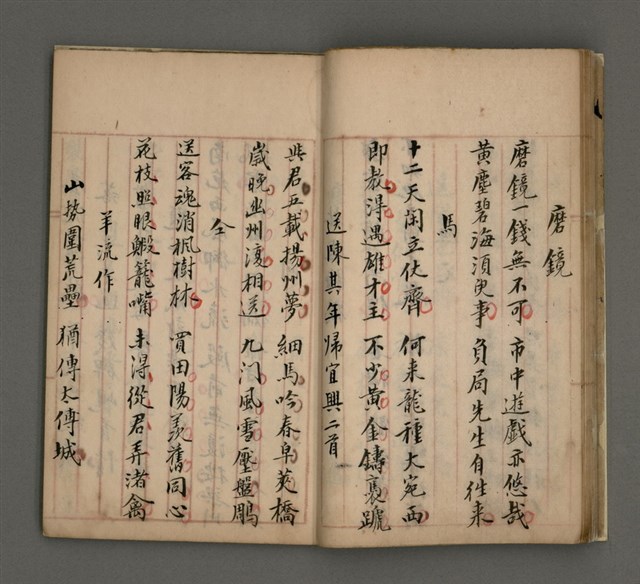 磨鏡
磨鏡一錢無不可　市中遊戲亦悠哉
黃塵碧海須臾事　負局先生自往來
馬
十二天閑立仗齊　何来龍種大宛西
即教淂遇雄才主　不少黃金鑄裹蹏
送陳其年歸宜興二首
與君五載揚州夢　細馬吟春皁莢橋
歲晚幽州復相送　九门風雪壓盤鵰
仝
送客魂消楓樹林　買田陽羨舊同心
花枝照眼蝦籠嘴　未得從君弄渚禽
羊流作
山勢圍荒壘　猶傳太傅城